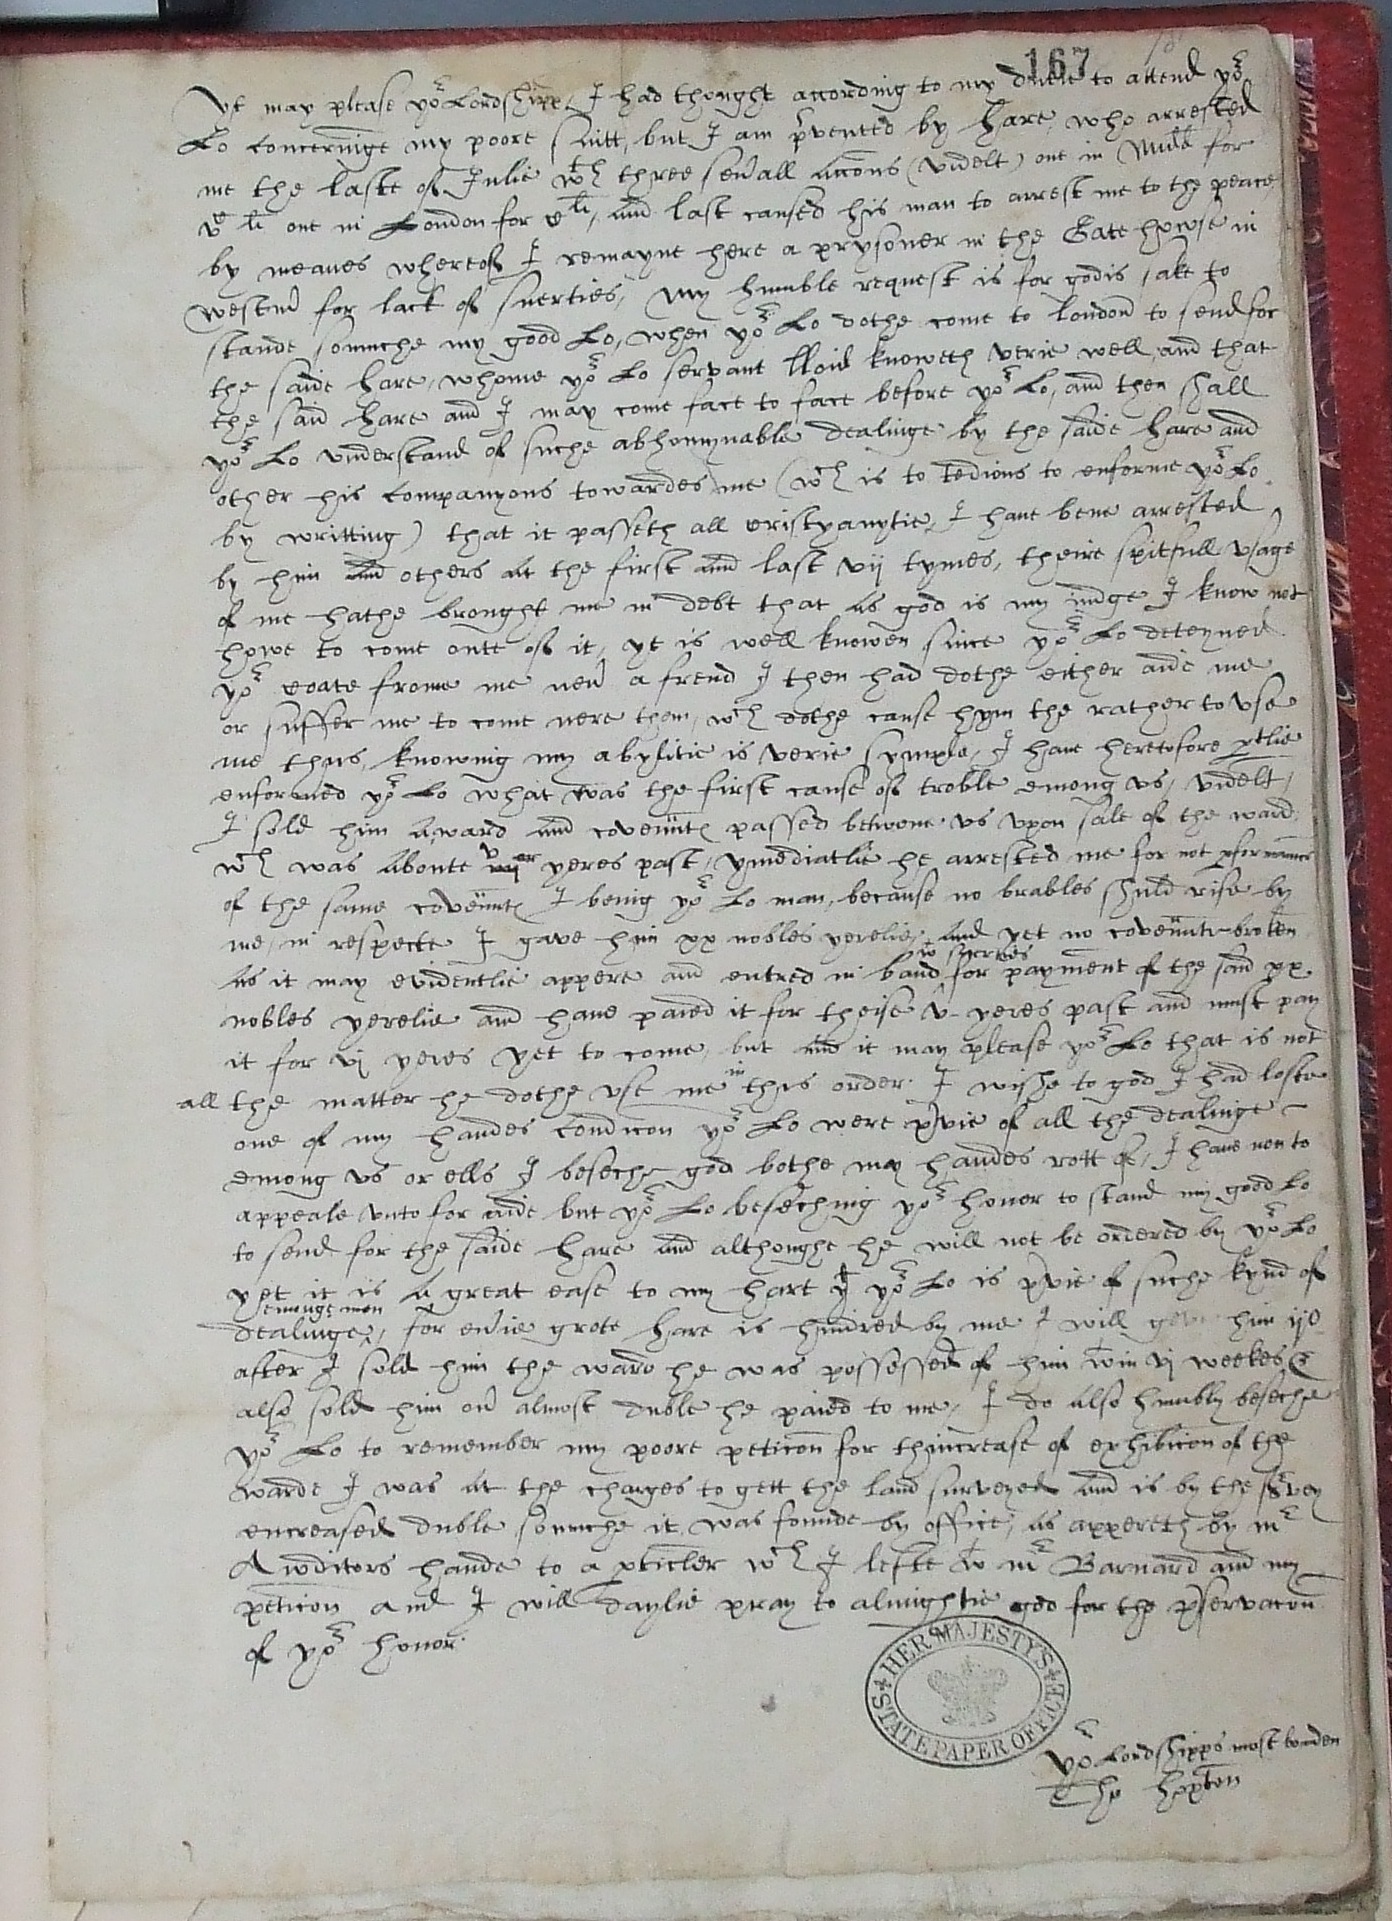 167
Yt may please yor Lordshipp, I had thought according to my dutie to attend yor
Lo concerninge my poore suitt, but I am pvented by Hare, who arrested
me the laste of Julie wth three sevall accons (videlt) one in Midd for
vc li one in London for cli, and last caused his man to arrest me to the peace,
by meanes whereof I remayne here a prysoner in the Gatehowse in
westm for lack of suerties, My humble request is for godis sake to
stande somuche my good Lo, when yor Lo dothe come to london to send for
the saide hare, whome yor Lo servant lloid knoweth verie well and that
the said hare and I may come face to face before yor Lo, and then shall
yor Lo understand of suche abhomynable dealinge by the saide hare and
other his companyons towardes me (wch is to tedious to enforme yor Lo
by writting) that it passeth all cristyanytie, I have bene arrested
by him and others at the first and last vij tymes, theire spitfull usage
of me hathe brought me in debt that as god is my iudge I know not
howe to come oute of it, yt is well knowen since yor Lo deteyned
yor coate frome me nev a frend I then had dothe either aide me
or suffer me to come nere them, wch dothe cause hym the rather to use
me thus, knowing my abylitie is verie symple, I have heretofore ptlie
enformed yor Lo what was the first cause of troble emong us, videlt,
I sold him a ward and covennts passed betwene us upon sale of the ward,
wch was aboute v yeres past, ymediatlie he arrested me for not pformance
of the same covennts I being yor Lo man, because no brables shuld rise by
me, in respecte I gave him xx nobles yerelie, and yet no covennte broken
as it may evidentlie appere and entred in band w suerties for payment of the said xx
nobles yerelie and have paied it for theise v yeres past and must pay
it for vj yeres yet to come, but and it may please yor Lo that is not
all the matter he dothe use me in this order. I wishe to god I had loste
one of my handes condicon yor Lo were pvie of all the dealinge
emong us or ells I beseche god bothe my handes rott of, I have non to
appeale unto for aide but yor Lo beseching yor honor to stand my good Lo
to send for the saide hare and althoughe he will not be ordered by yor Lo
yet it is a great ease to my hart yt yor Lo is pvie of suche kynd of
dealinge emonge men, for evie grote hare is hindred by me I will geve him ijs
after I sold him the ward he was possessed of him win vj weekes &
also sold him ov almost duble he paied to me, I do also humbly beseche
yor Lo to remember my poore peticon for thincrease of exhibicon of the
warde I was at the charges to gett the land surveyed and is by the survey
encreased duble somuche it was founde by office, as appereth by mr
Awditors hande to a pticler wch I lefte w mr Barnard and my
peticon and I will daylie pray to almightie god for the pservacon
of yor honor.
HER MAJESTY'S STATE PAPER OFFICE
yor Lordshipps most bounden
Tho hopton